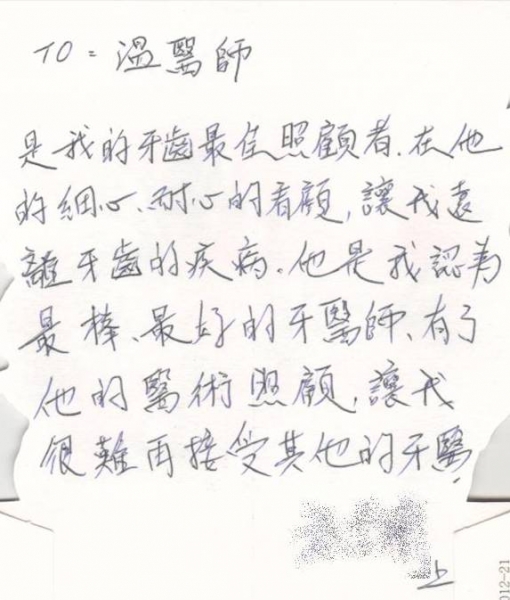 TO = 溫醫師
是我的牙齒最佳照顧者.在他
的細心、耐心的看顧,讓我遠
離牙齒的疾病.他是我認為
最棒、最好的牙醫師、有了
他的醫術照顧,讓我
很難再接受其他的牙醫.
上
012-21